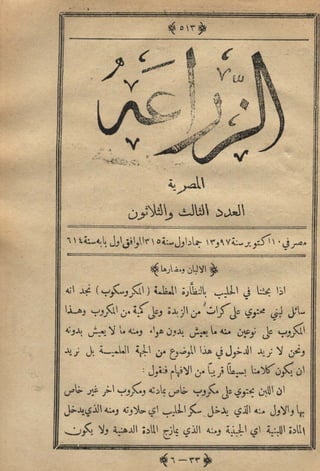 ﴿ ٥١٣ ﴾
الزراعة
المصرية
العدد الثالث والثلاثون
مصر في ١٠ اكتوبر سنة ٩٧ و١٣ جماد اول سنة ٣١٥ الموافق اول بابه سنة ٦١٤
﴿ الالبان ومضارها ﴾
اذا بحثنا في الحليب بالنظارة المعظمة ( المكروسكوب ) نجد انه
سائل لبني محتوي على كرات من الزبدة وعلى كمية من المكروب وهــذا
المكروب على نوعين منه ما يعيش بدون هواء ومنه ما لا يعيش بدونه
ونحن لا نريد الدخول في هذا الموضوع من الجهة العلميــة بل نريد
ان يكون كلامنا بسيطاً قريباً من الافهام فنقول :
ان اللبن يحتوي على مكروب خاص بمادته ومكروب اخر غير خاص
بها والاول منه الذي يدخل سكر الحليب اي حلاوته ومنه الذي يدخل
المادة اللبنية اي الجبنية ومنه الذي يمازج المادة الدهنية ولا يكون
﴿ ٣٣ — ٦ ﴾